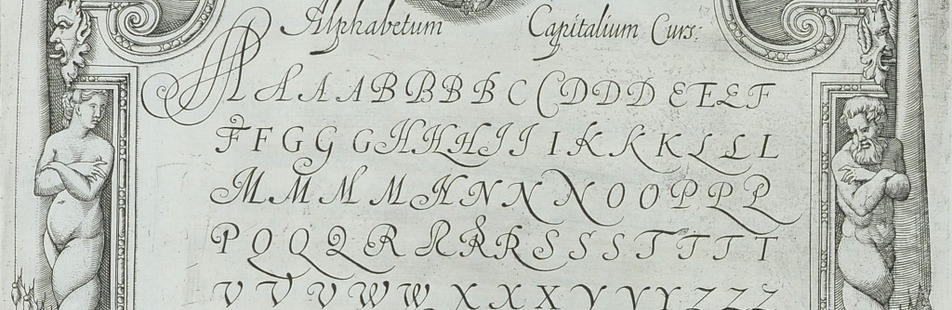 Alphabetum Capitalium Curs:
A A A A B B B B C C D D D E E E F
F F G G G H H H I I I K K K L L L
M M M M M N N N N O O P P P
P Q Q Q R R R R S S S T T T T
V V V W W X X X Y Y Y Z Z Z